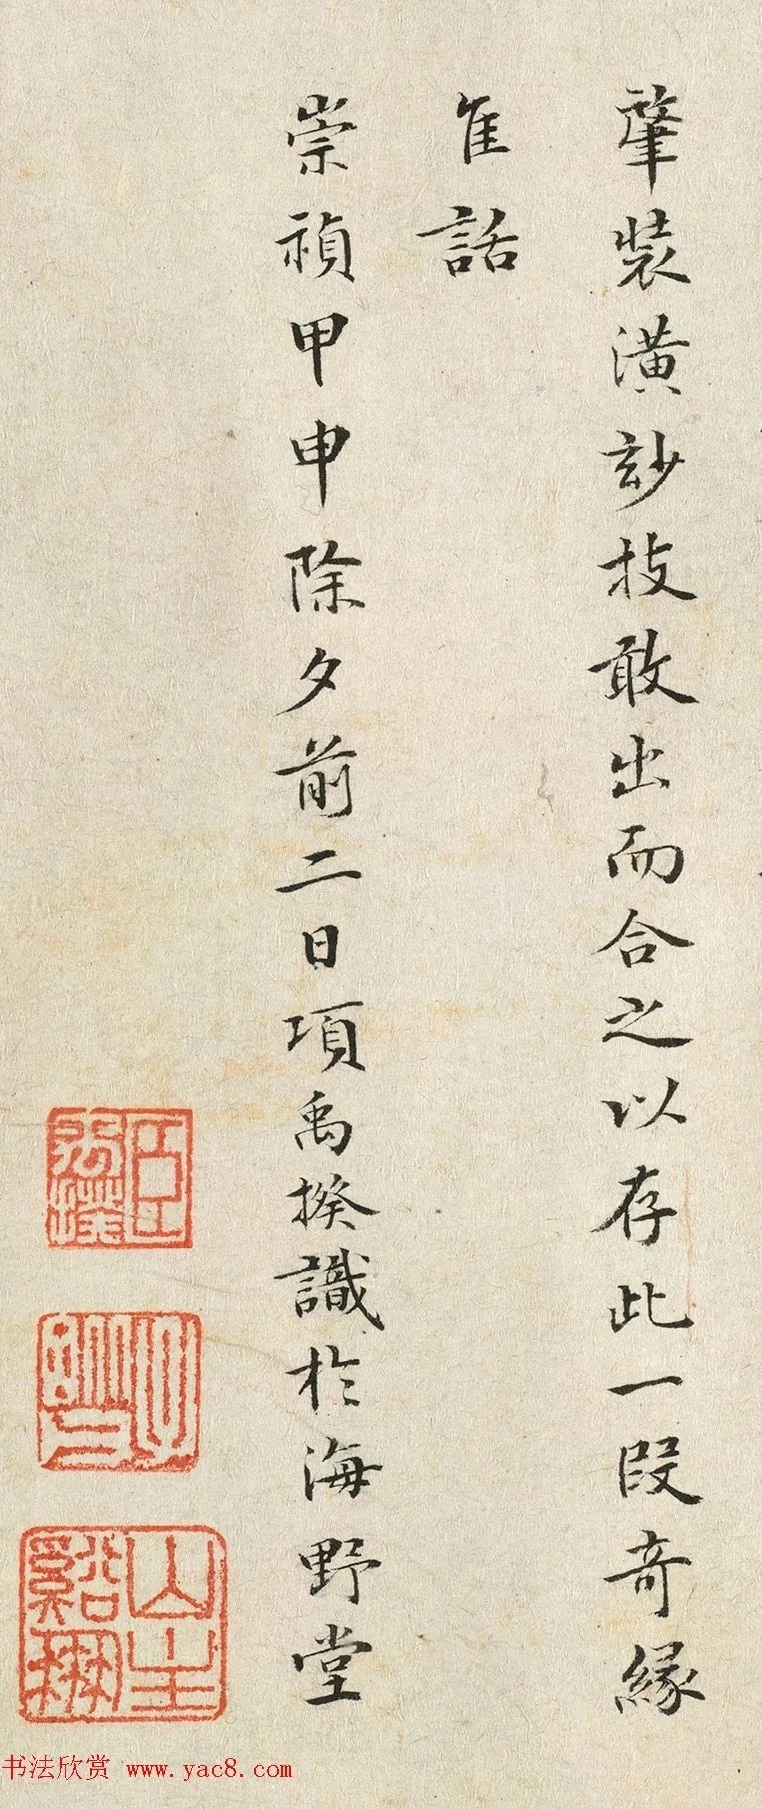 肇装潢玅技敢出而合之以存此一段奇緣
隹話
崇禎甲申除夕前二日項禹揆識於海野堂
书法欣赏 www.yac8.com